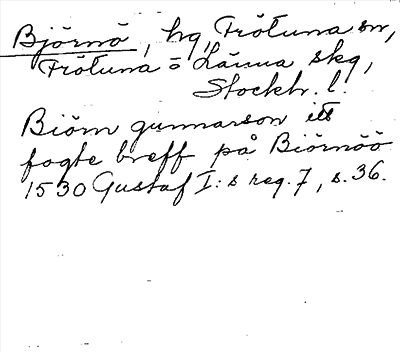 Björnö, hg, Frötuna sn,
Frötuna o Länna skg,
Stockh. l.
Biörn gunnarson ett
fogte breff på Biörnöö
1530 Gustaf I:s reg. 7, s. 36.